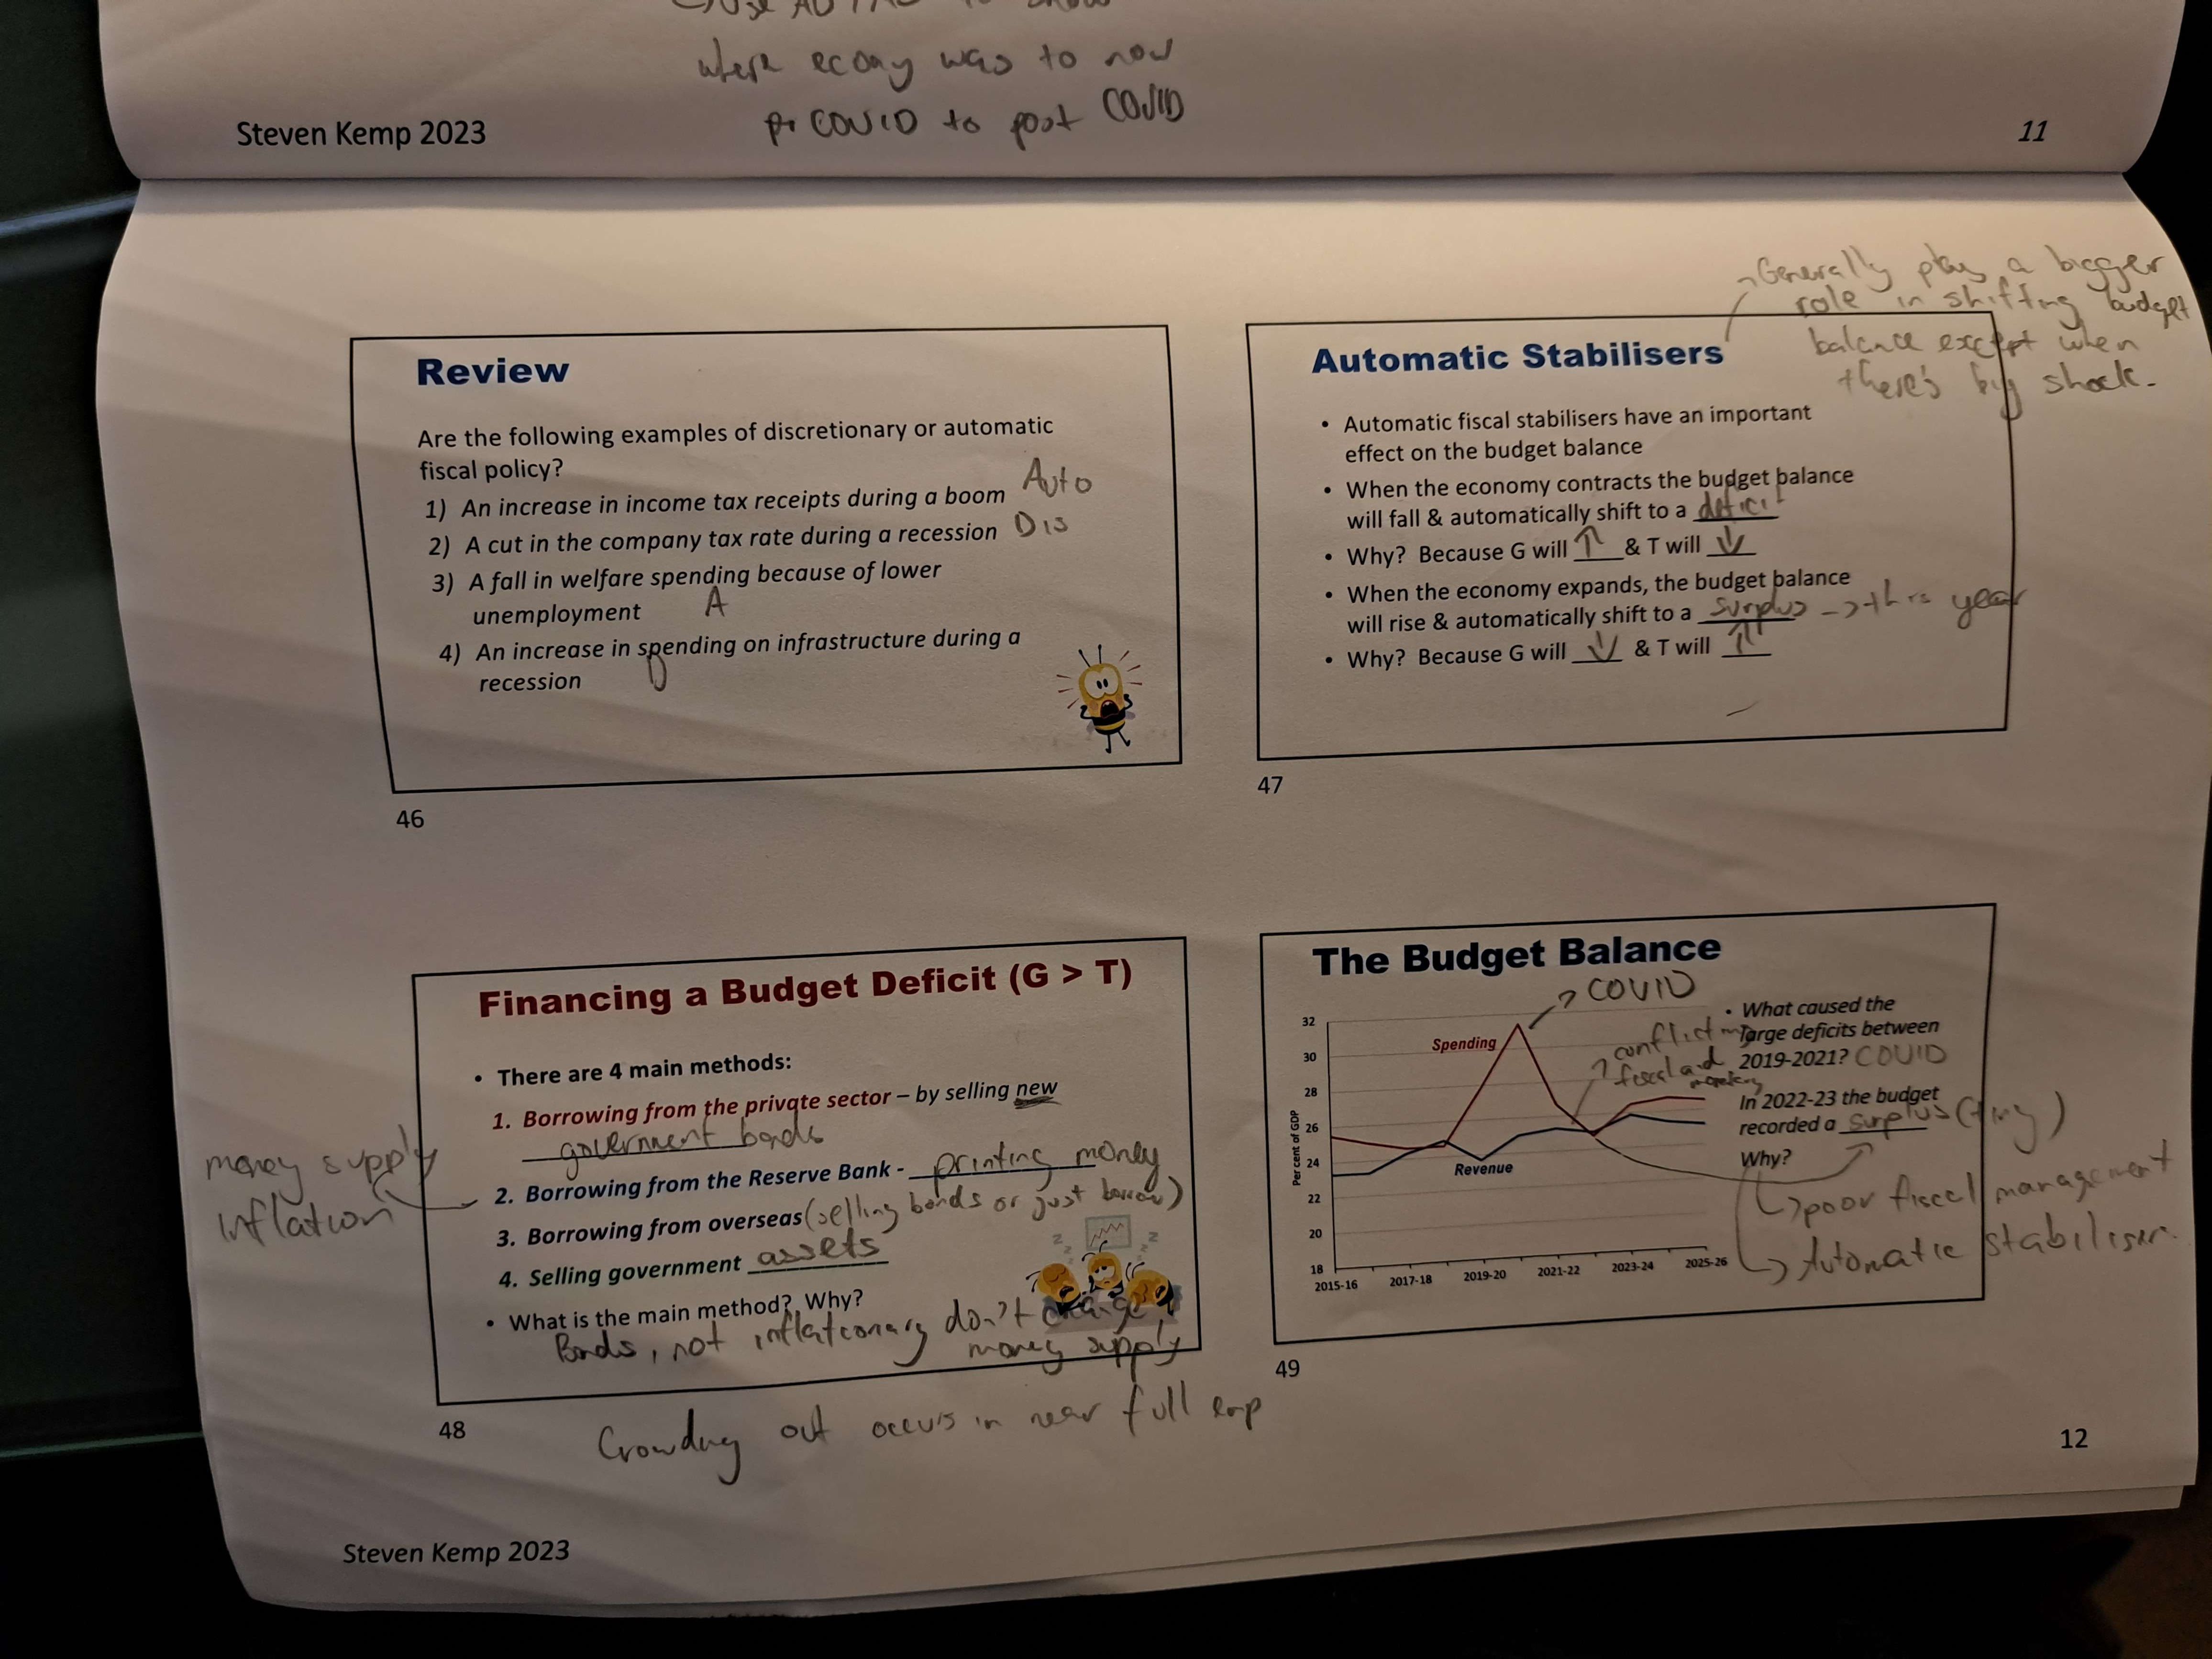 where ecomy was to now
pr COVID to post COVID
Steven Kemp 2023
11
Review
Are the following examples of discretionary or automatic
fiscal policy?
1) An increase in income tax receipts during a boom Auto
2) A cut in the company tax rate during a recession Dis
3) A fall in welfare spending because of lower
unemployment A
4) An increase in spending on infrastructure during a
recession D
46
Generally play a bigger
role in shifting budget
balance except when
there's big shock.
Automatic Stabilisers
• Automatic fiscal stabilisers have an important
effect on the budget balance
• When the economy contracts the budget balance
will fall & automatically shift to a deficit
• Why? Because G will ↑ & T will ↓
• When the economy expands, the budget balance
will rise & automatically shift to a surplus -> this year
• Why? Because G will ↓ & T will ↑
47
Financing a Budget Deficit (G > T)
• There are 4 main methods:
1. Borrowing from the private sector – by selling new
government bonds
2. Borrowing from the Reserve Bank - printing money
3. Borrowing from overseas (selling bonds or just borrow)
4. Selling government assets
• What is the main method? Why?
Bonds, not inflationary don't change
money supply
money supply
inflation
48
Crowding out occurs in near full emp
The Budget Balance
COVID
32
30
28
26
24
22
20
18
Per cent of GDP
Spending
Revenue
2015-16
2017-18
2019-20
2021-22
2023-24
2025-26
conflicting
fiscal and
monetary
• What caused the
large deficits between
2019-2021? COVID
In 2022-23 the budget
recorded a surplus (tiny)
Why?
poor fiscal management
Automatic stabiliser.
49
12
Steven Kemp 2023